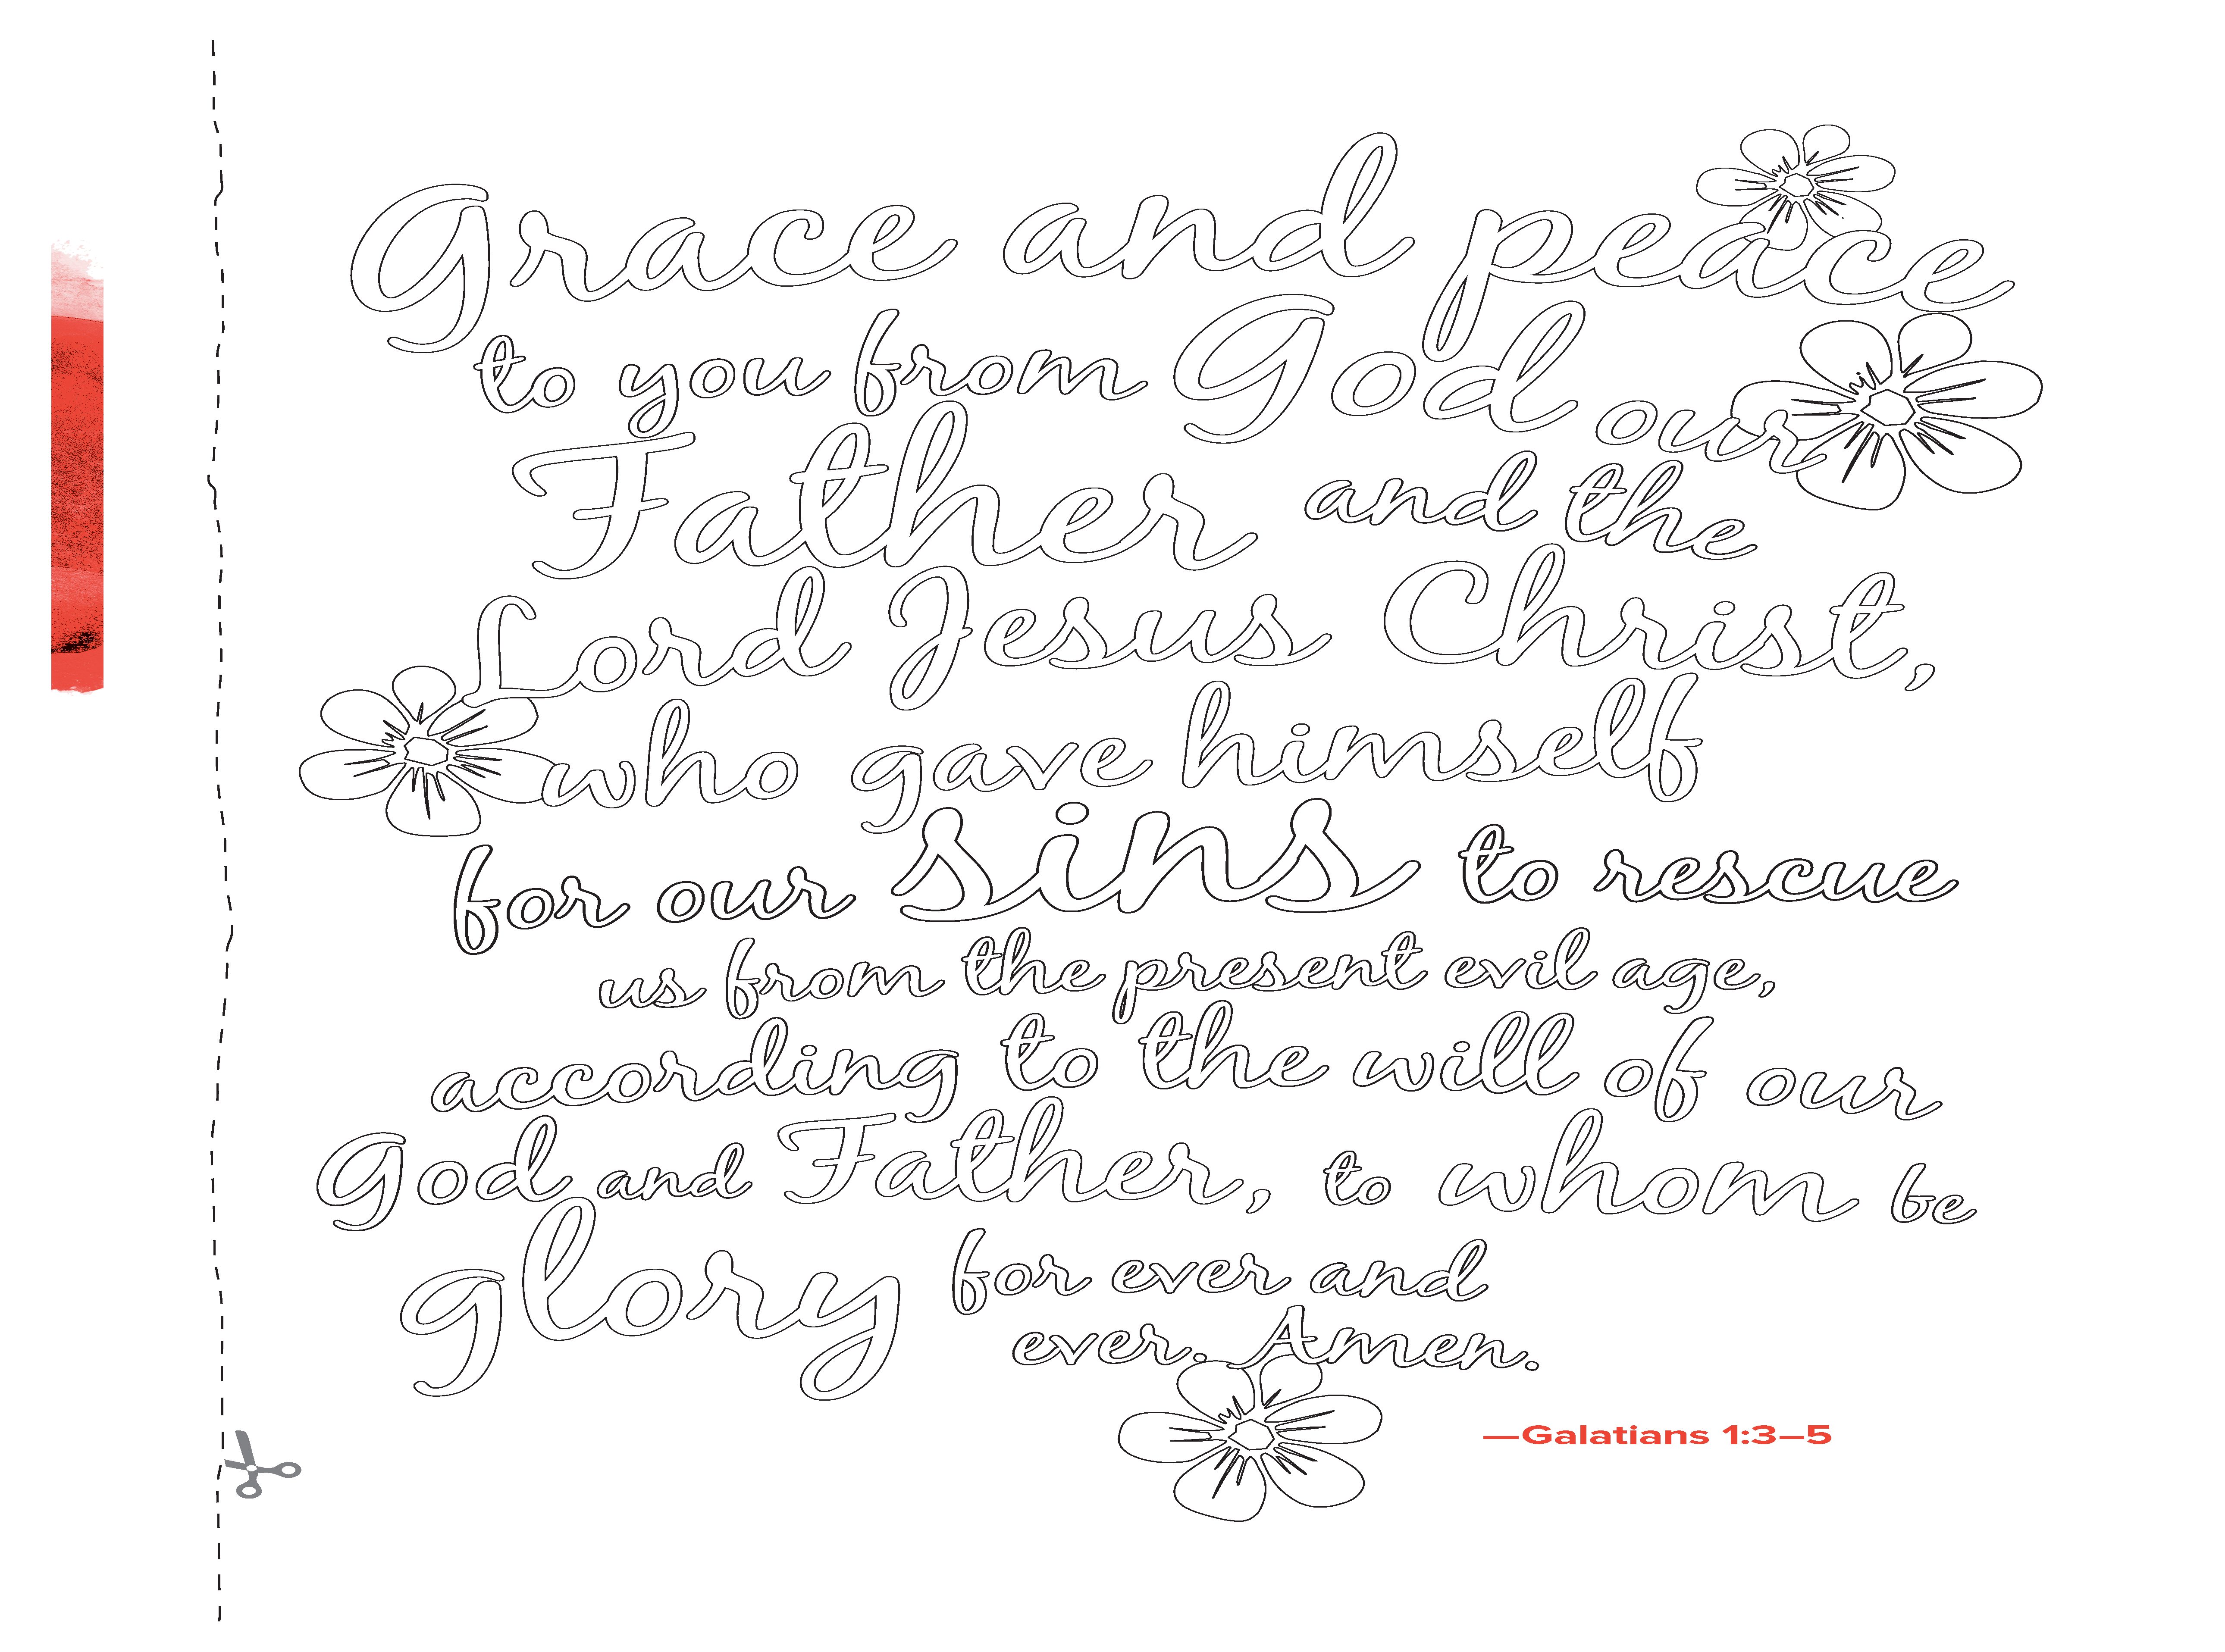 Grace and peace
to you from God our
Father and the
Lord Jesus Christ,
who gave himself
for our sins to rescue
us from the present evil age,
according to the will of our
God and Father, to whom be
glory for ever and
ever. Amen.
—Galatians 1:3–5